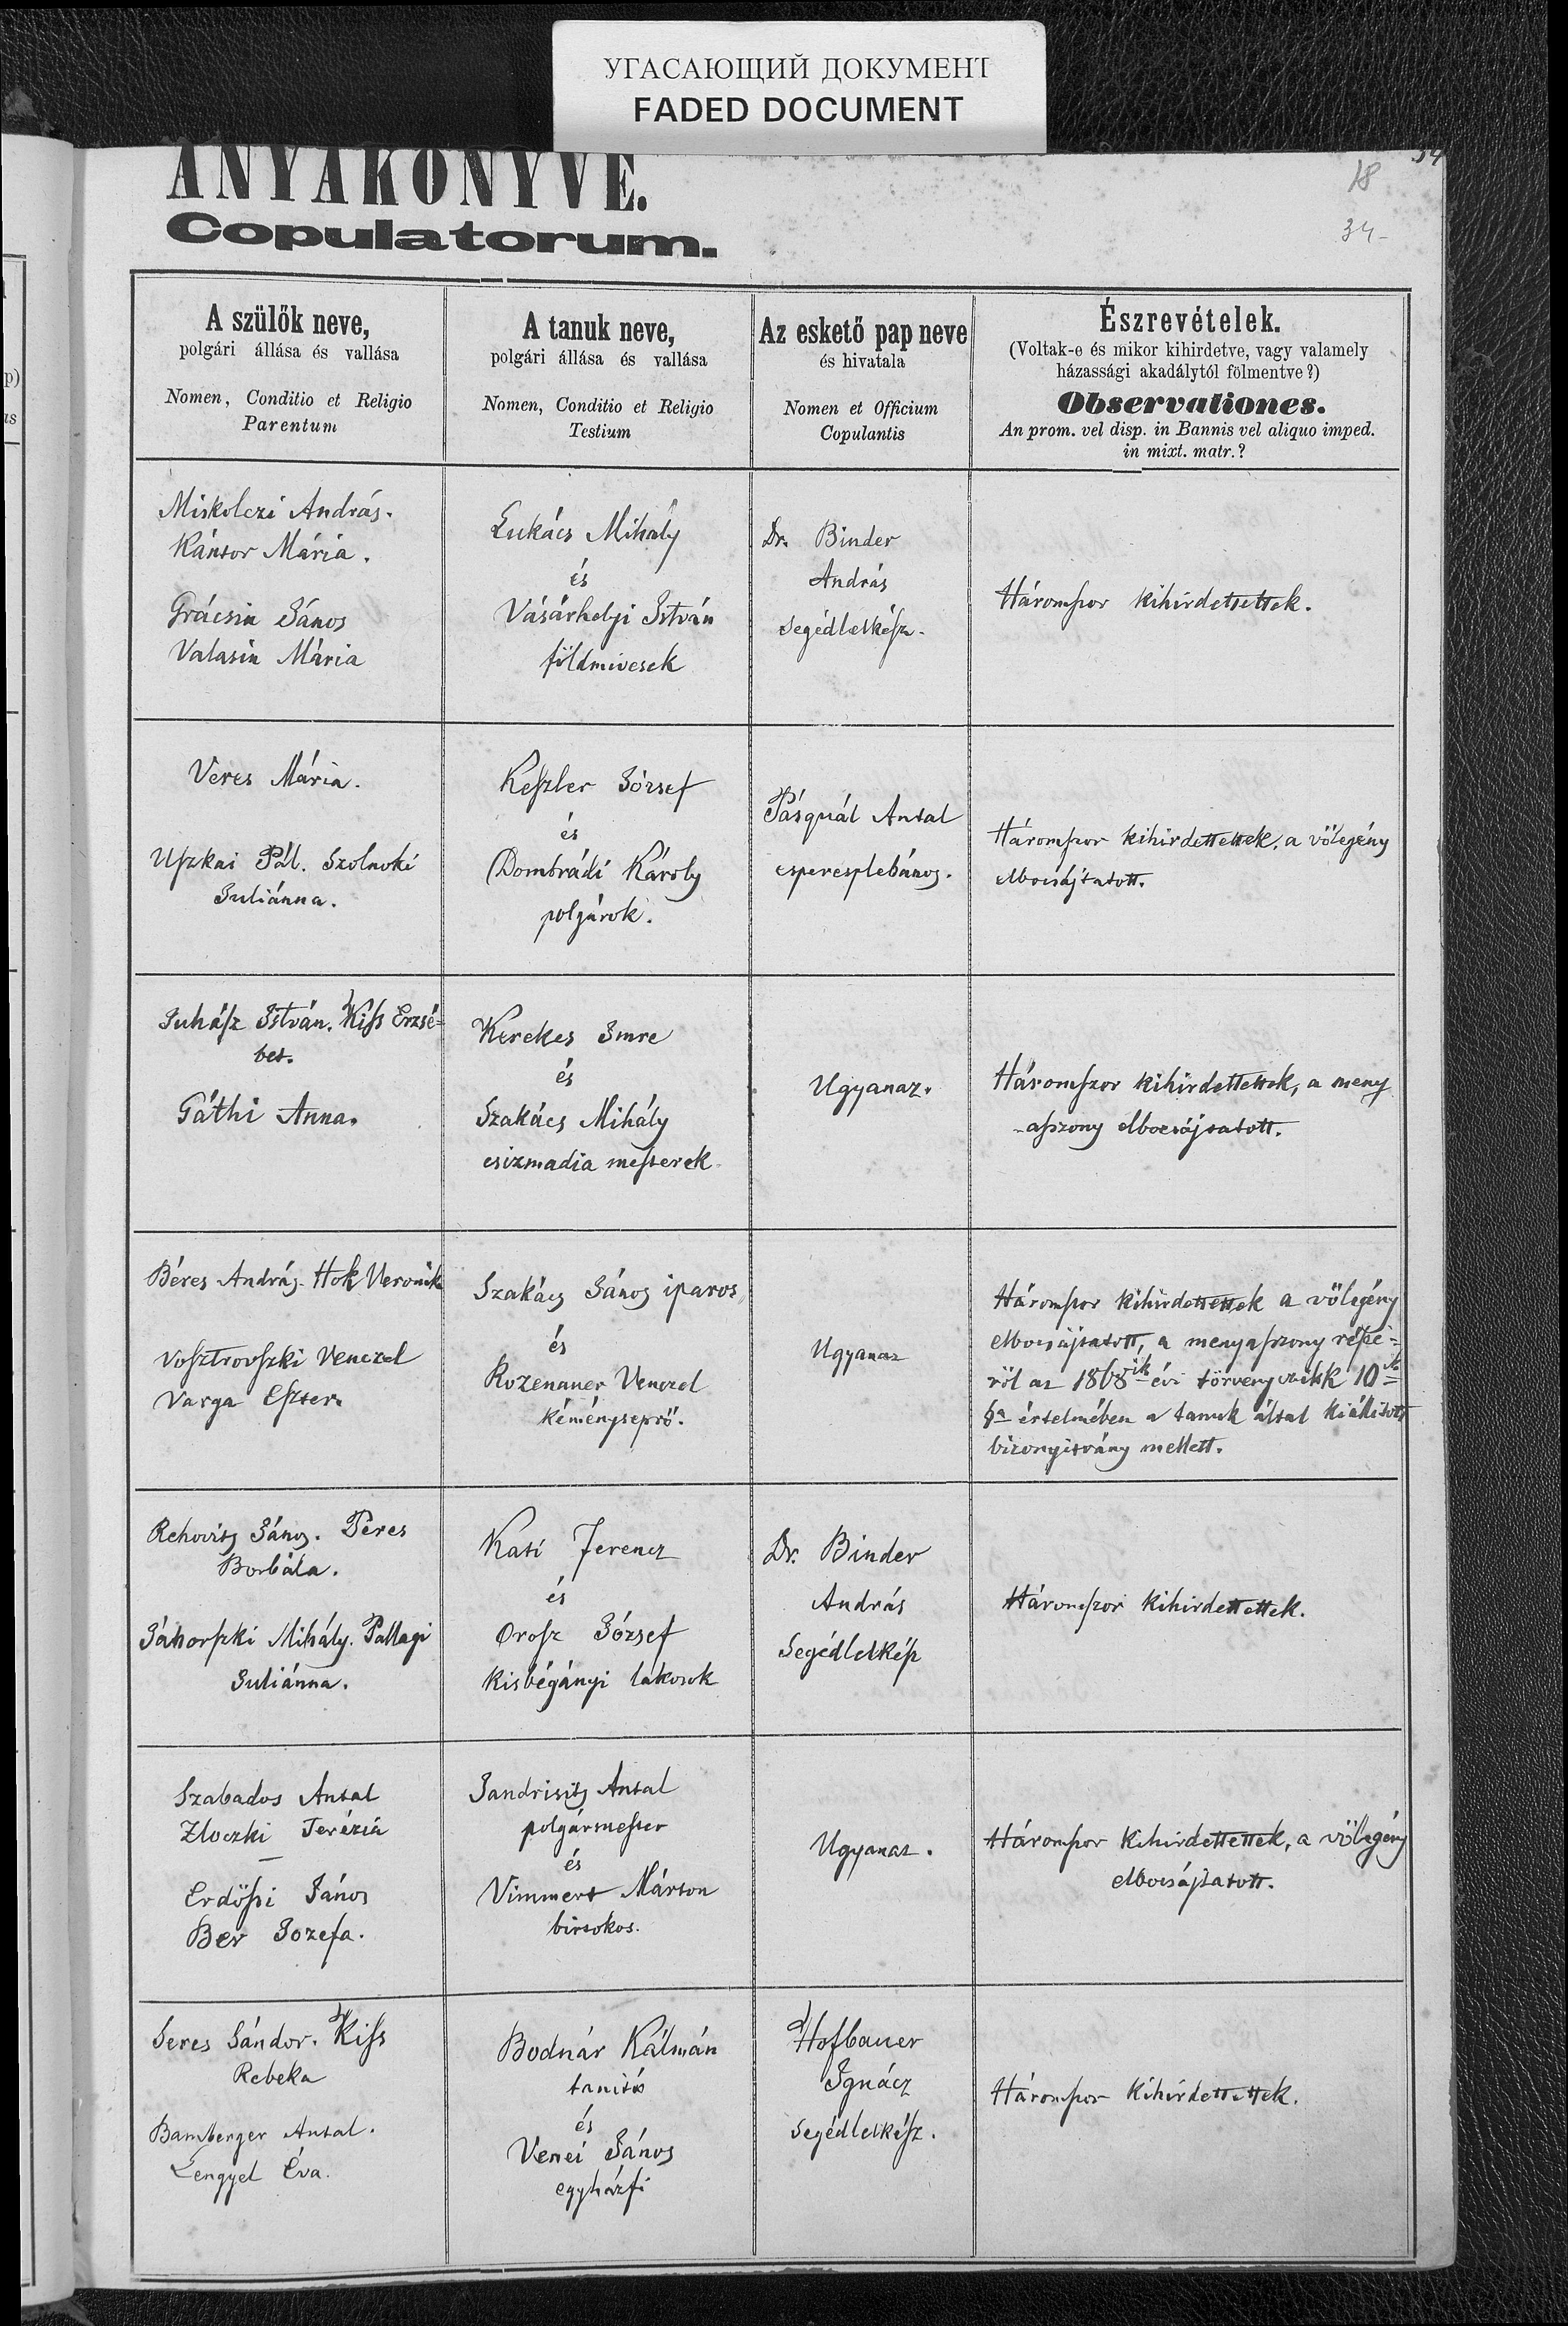 УГАСАЮЩИЙ ДОКУМЕНТ
FADED DOCUMENT
ANYAKÖNYVE.
Copulatorum.
18
34-
A szülők neve,
polgári állása és vallása
Nomen, Conditio et Religio
Parentum
A tanuk neve,
polgári állása és vallása
Nomen, Conditio et Religio
Testium
Az eskető pap neve
és hivatala
Nomen et Officium
Copulantis
Észrevételek.
(Voltak-e és mikor kihirdetve, vagy valamely
házassági akadálytól fölmentve?)
Observationes.
An prom. vel disp. in Bannis vel aliquo imped.
in mixt. matr.?
Miskolczi András.
Kántor Mária.
Grácsin János
Valasin Mária
Lukács Mihály
és
Vásárhelyi István
földmivesek
Dr. Binder
András
segédlelkész.
Háromszor kihirdettettek.
Veres Mária.
Uszkai Pál. Szolnoki
Juliánna.
Keszler József
és
Dombrádi Károly
polgárok.
Pásquál Antal
esperesplebános.
Háromszor kihirdettettek, a vőlegény
elbocsájtatott.
Juhász István. Kiss Erzsé-
bet.
Gáthi Anna.
Kerekes Imre
és
Szakács Mihály
csizmadia mesterek
Ugyanaz.
Háromszor kihirdettettek, a meny
-asszony elbocsájtatott.
Béres András. Hok Veronik
Vosztrovszki Venczel
Varga Eszter.
Szakács János iparos
és
Rozenauer Venczel
kéményseprő.
Ugyanaz
Háromszor kihirdettettek a vőlegény
elbocsájtatott, a menyasszony részé-
ről az 1868ik évi törvényczikk 10ik
§a értelmében a tanuk által kiállitott
bizonyitvány mellett.
Rehovits János. Peres
Borbála.
Jáhorszki Mihály. Pallagi
Juliánna.
Kati Ferencz
és
Orosz József
kisbégányi lakosok
Dr. Binder
András
segédlelkész
Háromszor kihirdettettek.
Szabados Antal
Zloczki Terézia
Erdőssi János
Ber Jozefa.
Jandrisits Antal
polgármester
és
Vimmert Márton
birtokos.
Ugyanaz.
Háromszor kihirdettettek, a vőlegény
elbocsájtatott.
Seres Sándor. Kiss
Rebeka
Bamberger Antal.
Lengyel Éva.
Bodnár Kálmán
tanitó
és
Venei János
egyházfi
Hofbauer
Ignácz
segédlelkész.
Háromszor kihirdettettek.